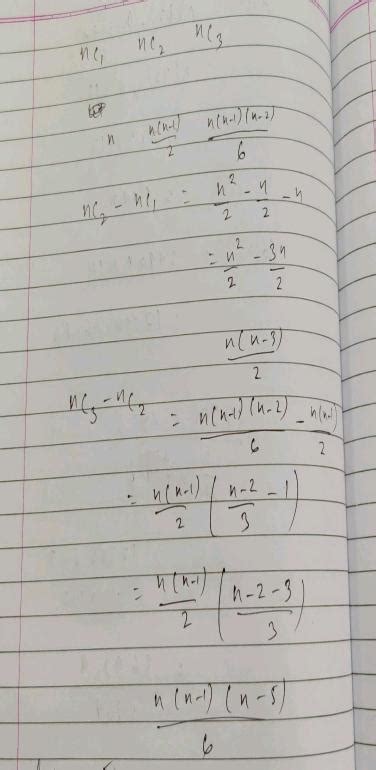 nC₁ nC₂ nC₃
n n(n-1)/2 n(n-1)(n-2)/6
nC₂ - nC₁ = n²/2 - n/2 - n
= n²/2 - 3n/2
n(n-3)/2
nC₃ - nC₂ = n(n-1)(n-2)/6 - n(n-1)/2
= n(n-1)/2 ( n-2/3 - 1 )
= n(n-1)/2 ( n-2-3/3 )
n(n-1)(n-5)/6